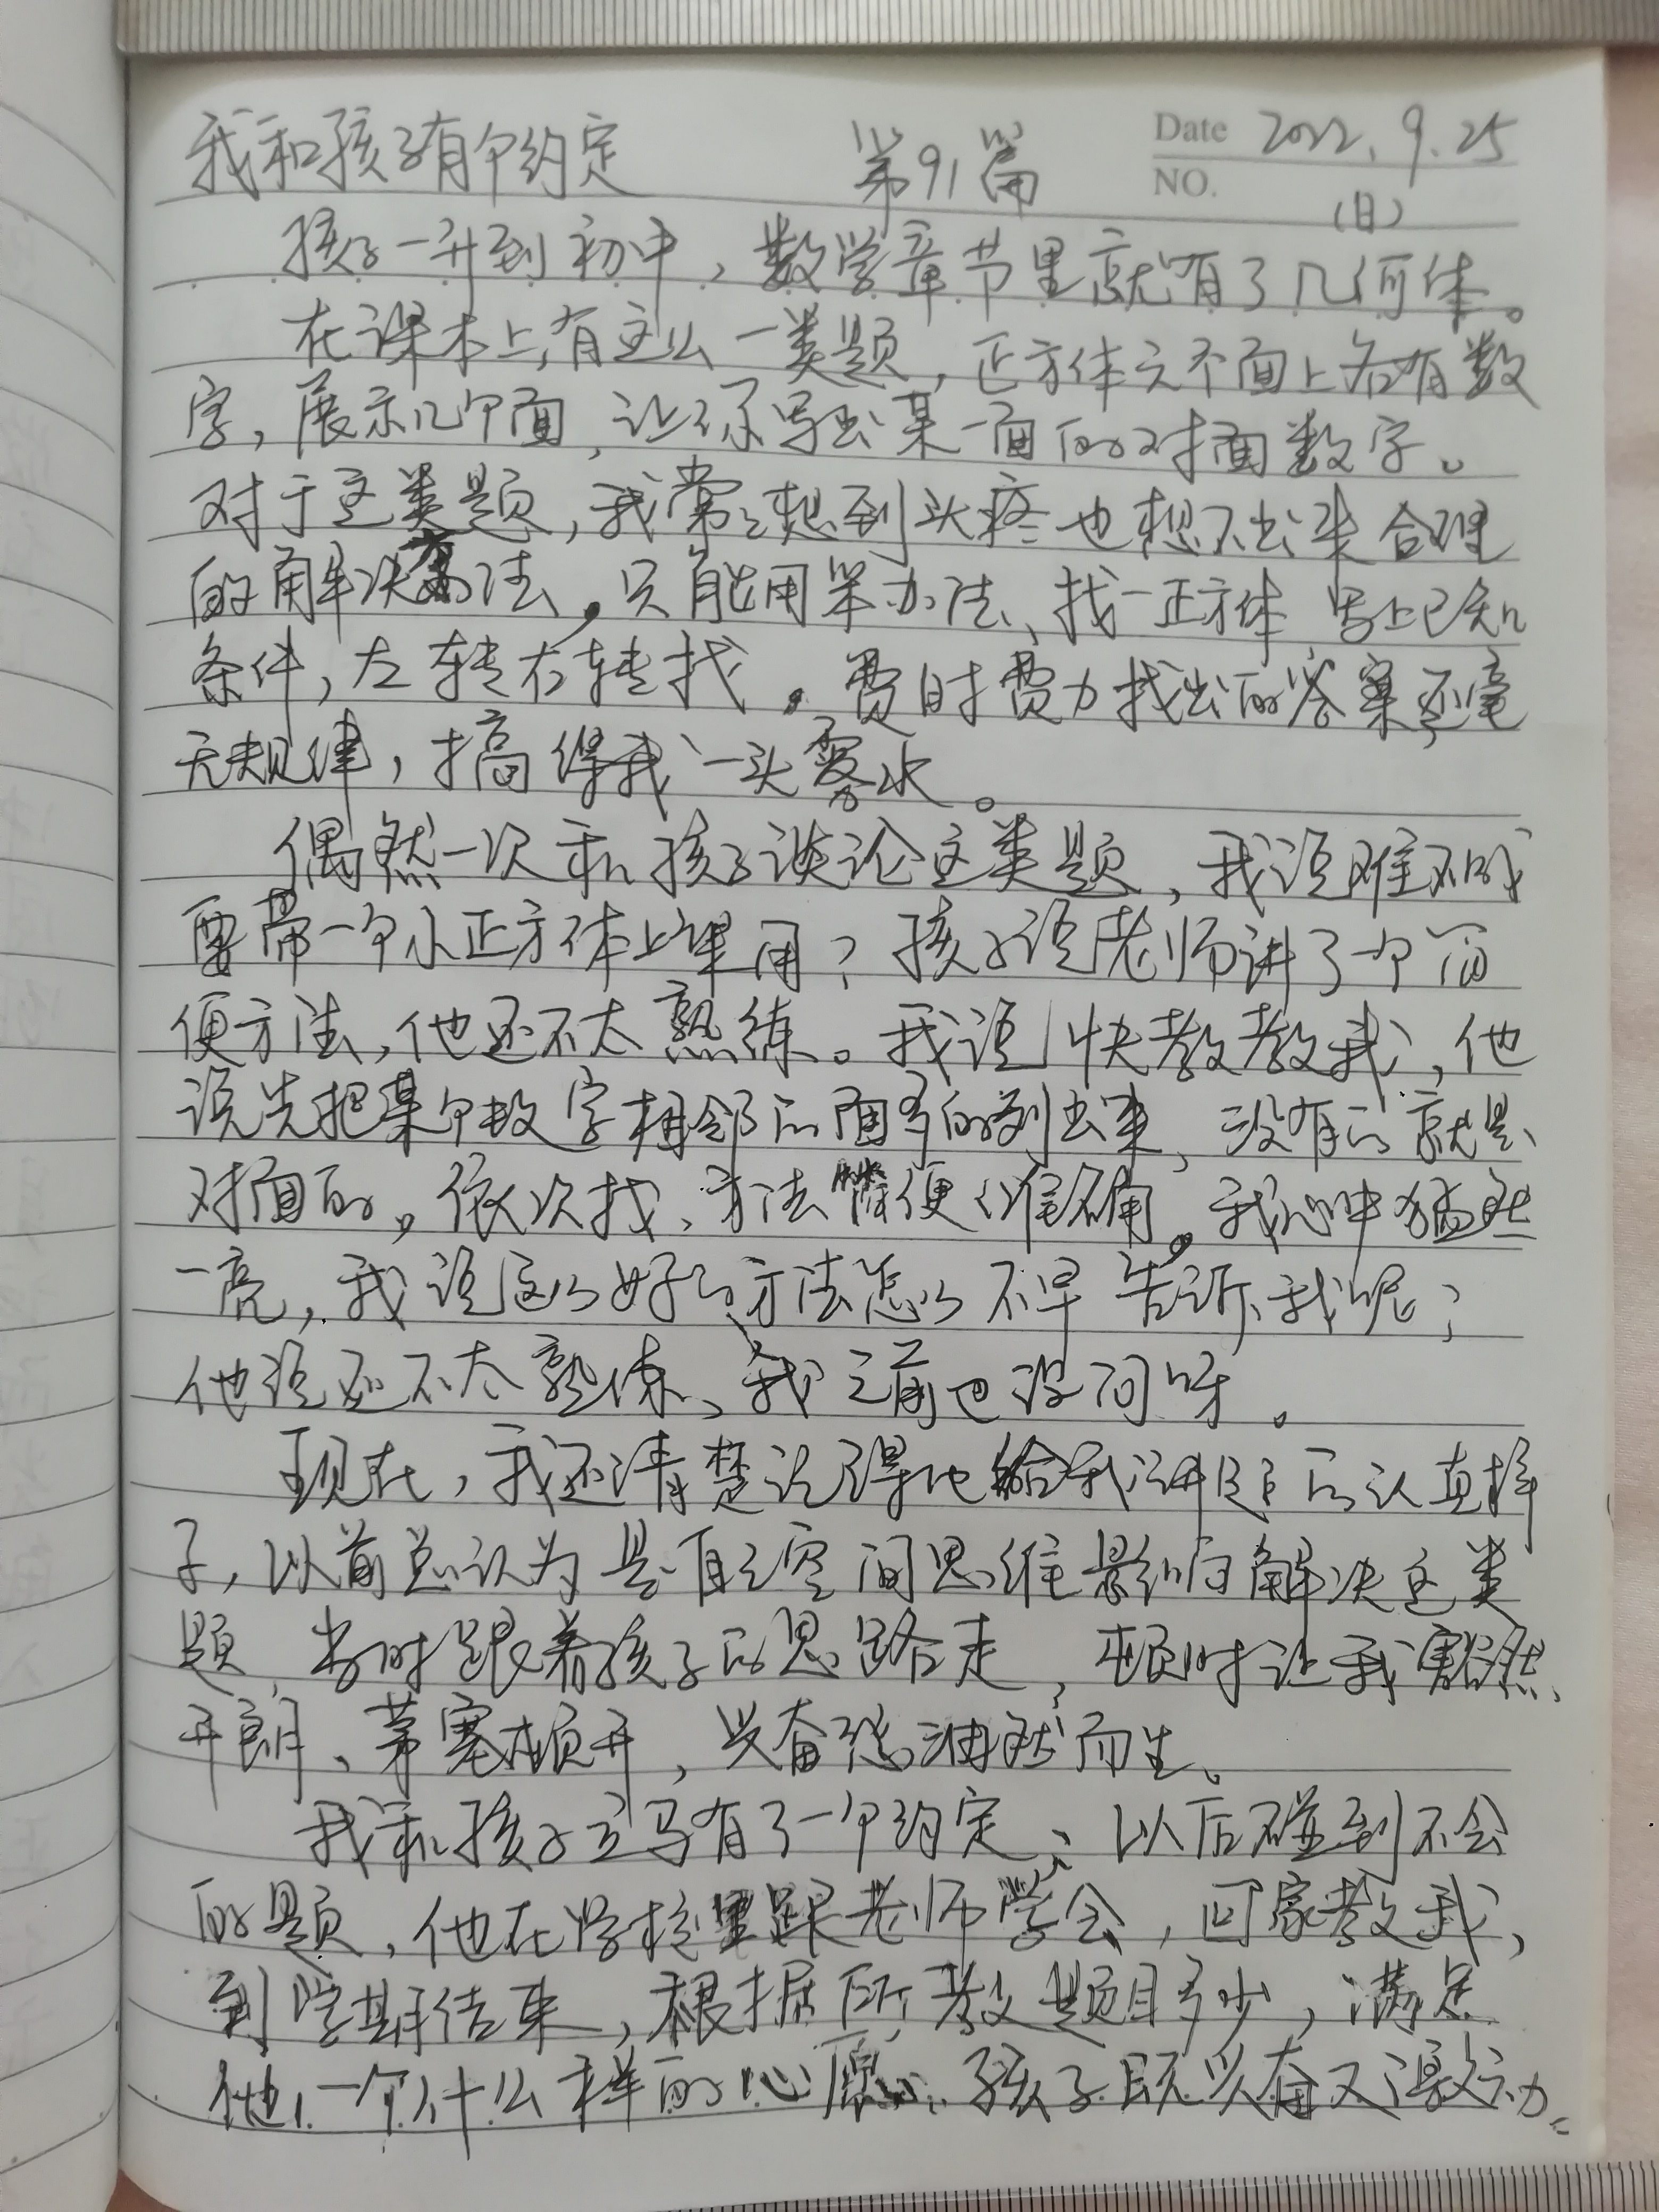 我和孩子有个约定 第91篇 Date 2022.9.25
NO. (日)
孩子一升到初中，数学章节里就有了几何体。
在课本上，有这么一类题，正方体六个面上各有数
字，展示几个面，让你写出某一面的对面数字。
对于这类题，我常常想到头疼也想不出来合理
的解决方法，只能用笨办法，找一正方体 写上已知
条件，左转右转找，费时费力找出的答案还毫
无规律，搞得我一头雾水。
偶然一次和孩子谈论这类题，我说难不成
要带一个小正方体上课用？孩子说老师讲了个简
便方法，他还不太熟练。我说快教教我，他
说先把某个数字相邻的面有的列出来，没有的就是
对面的，依次找，方法简便准确。我心中猛然
一亮，我说这么好的方法怎么不早告诉我呢？
他说还不太熟练，我之前也没问呀。
现在，我还清楚记得他给我讲题的认真样
子，以前总认为是自己空间思维影响解决这类
题，当时跟着孩子的思路走，顿时让我豁然
开朗、茅塞顿开，兴奋感油然而生。
我和孩子立马有了一个约定，以后碰到不会
的题，他在学校里跟老师学会，回家教我，
到学期结束，根据所教题目多少，满足
他一个什么样的心愿。孩子既兴奋又激动。